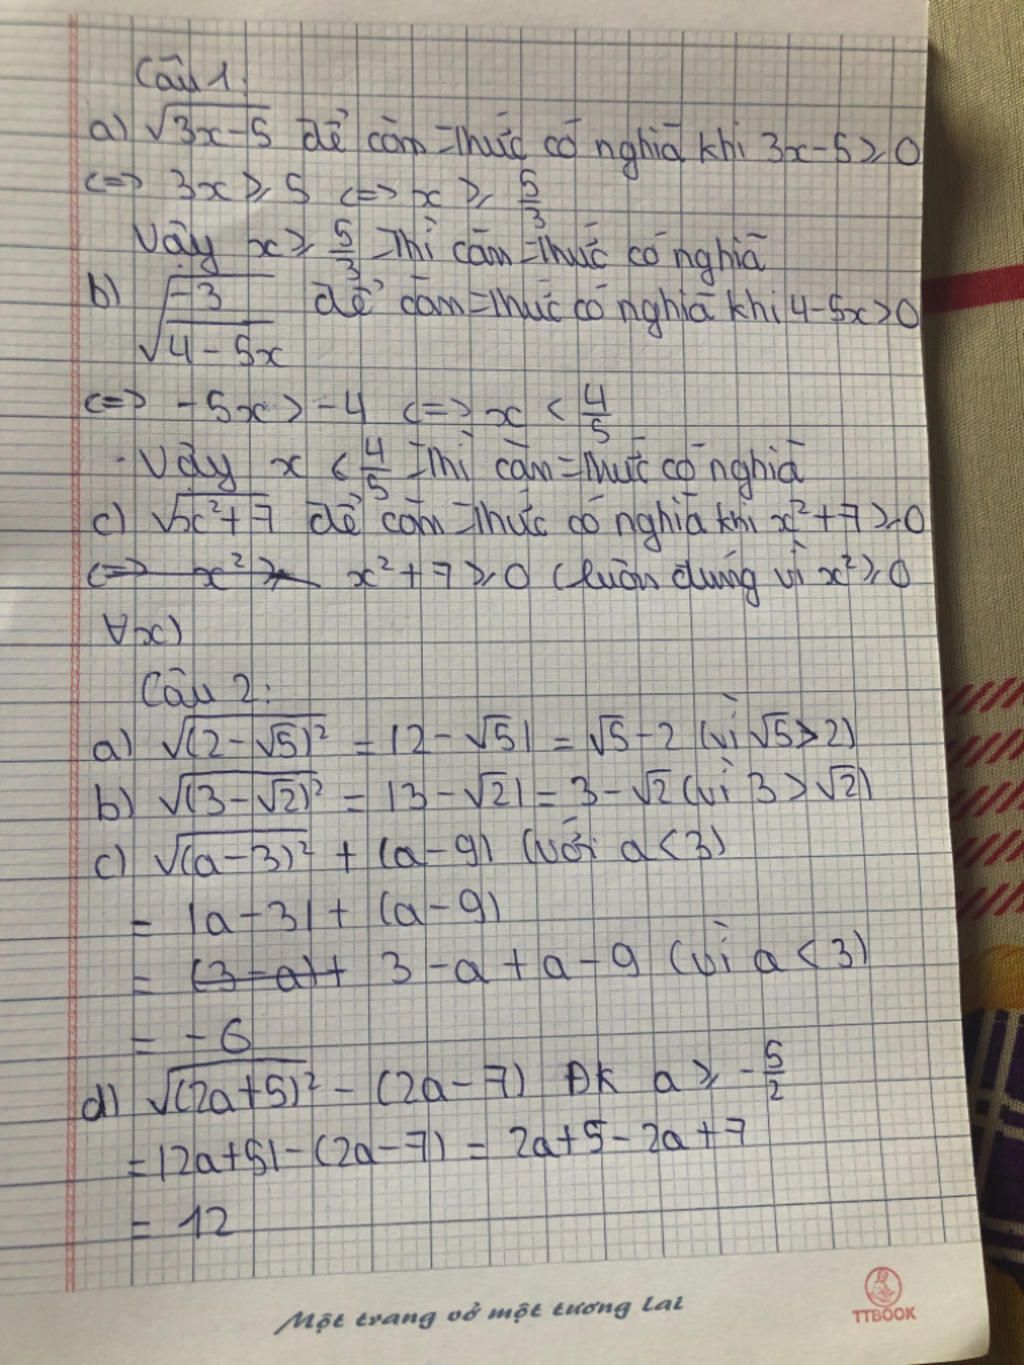 Câu 1:
a) √(3x-5) để căn thức có nghĩa khi 3x-5 ≥ 0
<=> 3x ≥ 5 <=> x ≥ 5/3
Vậy x ≥ 5/3 thì căn thức có nghĩa
b) √(-3/(4-5x)) để căn thức có nghĩa khi 4-5x > 0
<=> -5x > -4 <=> x < 4/5
- Vậy x < 4/5 thì căn thức có nghĩa
c) √(x²+7) để căn thức có nghĩa khi x²+7 ≥ 0
<=> x² ≥ x²+7 ≥ 0 (luôn đúng vì x² ≥ 0
∀x)
Câu 2:
a) √((2-√5)²) = |2-√5| = √5-2 (vì √5>2)
b) √((3-√2)²) = |3-√2| = 3-√2 (vì 3>√2)
c) √((a-3)²) + (a-9) (với a<3)
= |a-3| + (a-9)
= (3-a)+ 3-a+a-9 (vì a<3)
= -6
d) √((2a+5)²) - (2a-7) ĐK a ≥ -5/2
= |2a+5| - (2a-7) = 2a+5-2a+7
= 12
Một trang vở một tương lai
TTBOOK